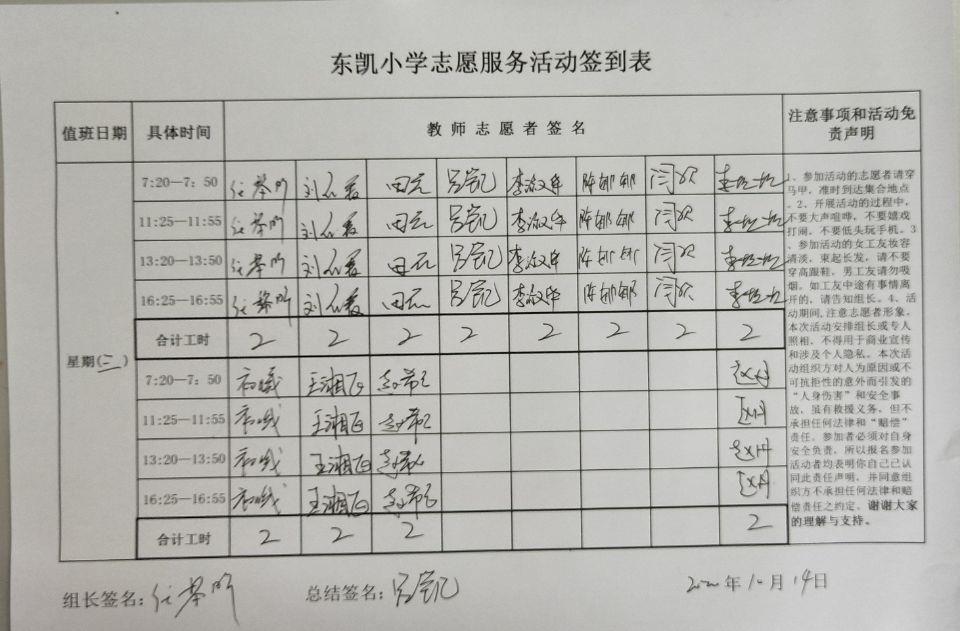 东凯小学志愿服务活动签到表
值班日期 具体时间 教师志愿者签名 注意事项和活动免责声明
7:20—7:50 田元 吕凯 李淑华 陈娜娜 闫欣
11:25—11:55 田元 吕凯 李淑华 陈娜娜 闫欣
13:20—13:50 田元 吕凯 李淑华 陈娜娜 闫欣
16:25—16:55 田元 吕凯 李淑华 陈娜娜 闫欣
合计工时 2 2 2 2 2 2 2 2
星期(二)
7:20—7:50
11:25—11:55
13:20—13:50
16:25—16:55
合计工时 2 2 2 2
1、参加活动的志愿者请穿
马甲,准时到达集合地点
。2、开展活动的过程中,
不要大声喧哗,不要嬉戏
打闹,不要低头玩手机。3
、参加活动的女工友妆容
清淡,束起长发,请不要
穿高跟鞋,男工友请勿吸
烟。如工友中途有事情离
开的,请告知组长。4、活
动期间,注意志愿者形象。
本次活动安排组长或专人
照相,不得用于商业宣传
和涉及个人隐私。本次活
动组织方对人为原因或不
可抗拒性的意外而引发的
“人身伤害”和安全事
故,虽有救援义务,但不
承担任何法律和“赔偿”
责任。参加者必须对自身
安全负责,所以报名参加
活动者均表明你自己已认
同此责任声明,并同意组
织方不承担任何法律和赔
偿责任之约定。谢谢大家
的理解与支持。
组长签名: 总结签名:吕凯 2020年10月14日